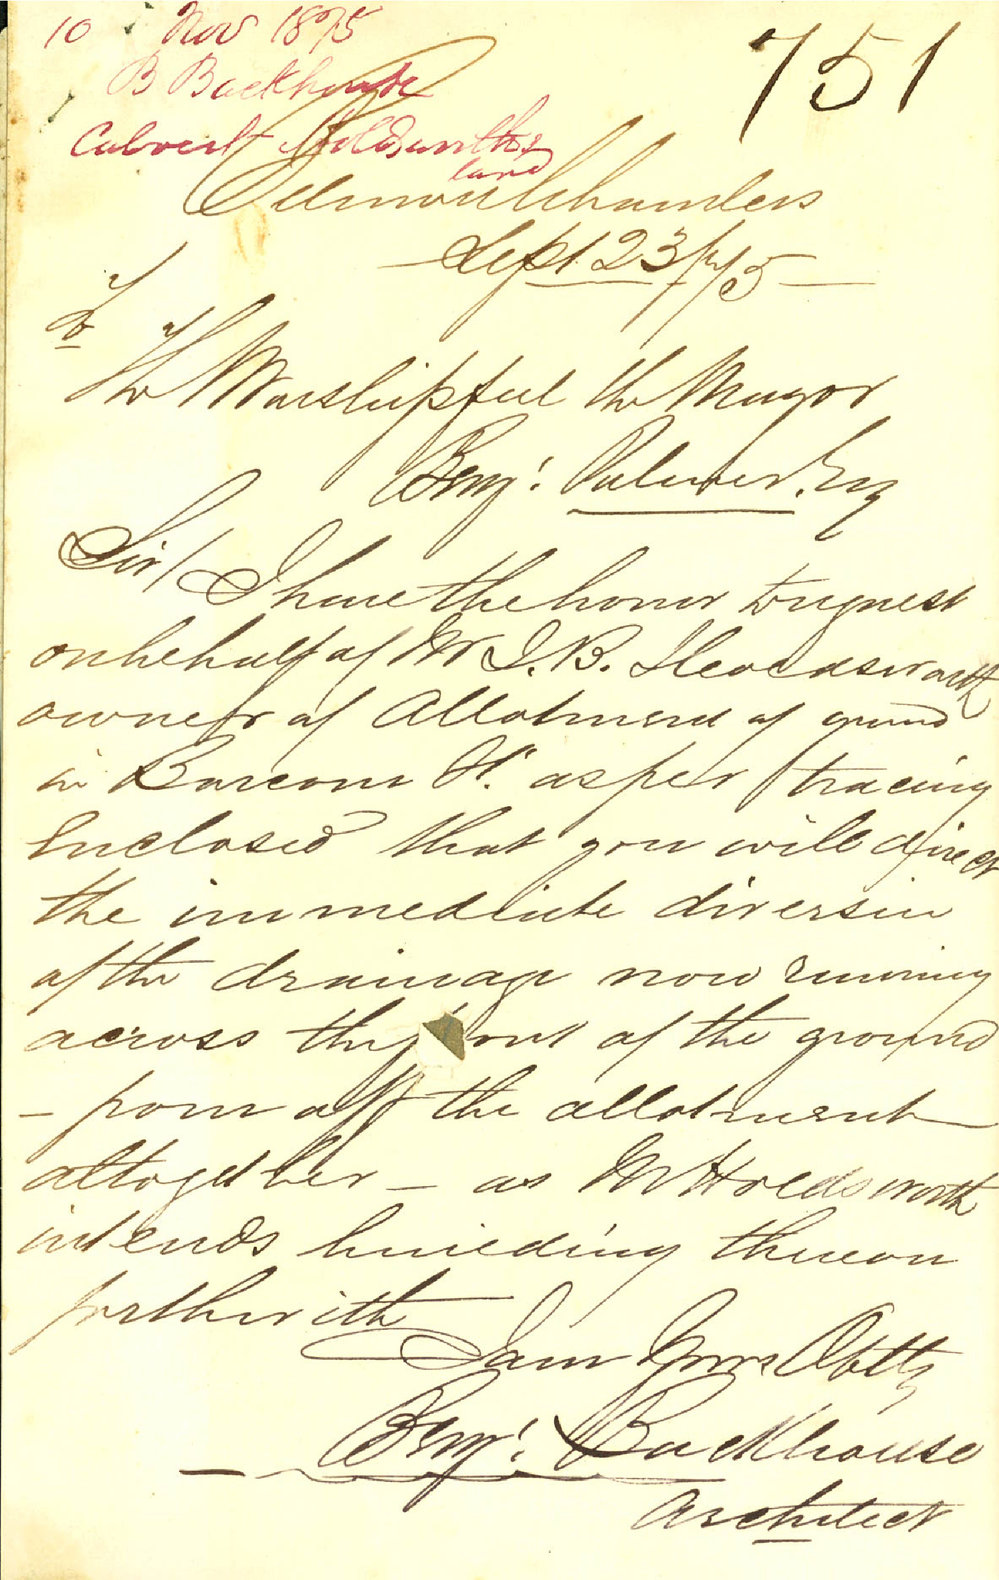 10 Nov 1875
B Backhouse
Culvert Holdsworth's
land
751
Chambers
Sept 23/75
To
The Worshipful the Mayor
Benj. Palmer. Esq
Sir/ I have the honor to request
on behalf of Mr J. B. Holdsworth
owner of Allotment of ground
in Barcom St. as per tracing
Enclosed that you will direct
the immediate diversion
of the drainage now running
across the front of the ground
- from off the allotment
altogether - as Mr Holdsworth
intends building thereon
forthwith
I am Yours Obtly
Benj. Backhouse
Architect